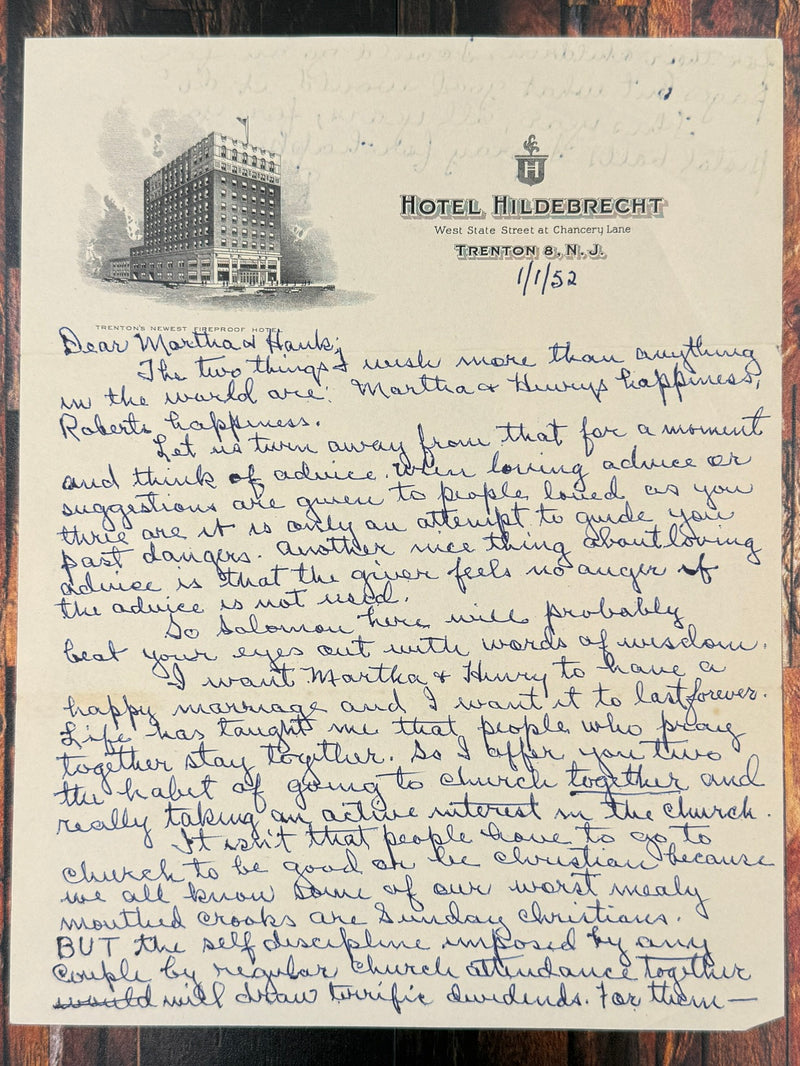 H
HOTEL HILDEBRECHT
West State Street at Chancery Lane
TRENTON 8, N. J.
1/1/52
TRENTON'S NEWEST FIREPROOF HOTEL
Dear Martha & Hank;
The two things I wish more than anything
in the world are: Martha & Henrys happiness,
Roberts happiness.
Let us turn away from that for a moment
and think of advice. When loving advice or
suggestions are given to people loved as you
three are it is only an attempt to guide you
past dangers. Another nice thing about loving
advice is that the giver feels no anger if
the advice is not used.
So Solomon here will probably
beat your eyes out with words of wisdom.
I want Martha & Henry to have a
happy marriage and I want it to last forever.
Life has taught me that people who pray
together stay together. So I offer you two
the habit of going to church together and
really taking an active interest in the church.
It isn't that people have to go to
church to be good or be christian because
we all know some of our worst mealy
mouthed crooks are Sunday christians.
BUT the self discipline imposed by any
couple by regular church attendance together
would will draw terrific dividends. For them—